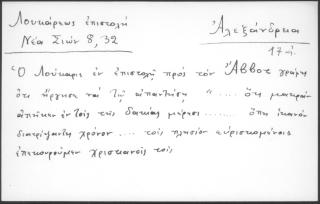 Λουκάρεως ἐπιστολὴ
Νέα Σιών 8, 32
Ἀλεξάνδρεια
17 α.
Ὁ Λούκαρις ἐν ἐπιστολῇ πρὸς τὸν Ἄββοτ γράφει
ὅτι ἤργησε νὰ τῷ ἀπαντήσῃ ".... ὅτι μακρὰν
ἀπῆμεν ἐν τοῖς τῆς δακίας μέρεσι ........ ὅπῃ ἱκανὸν
διατρίψαντες χρόνον .... τοῖς πλησίον εὑρισκομένοις
ἐπεκουροῦμεν χριστιανοῖς τοῖς